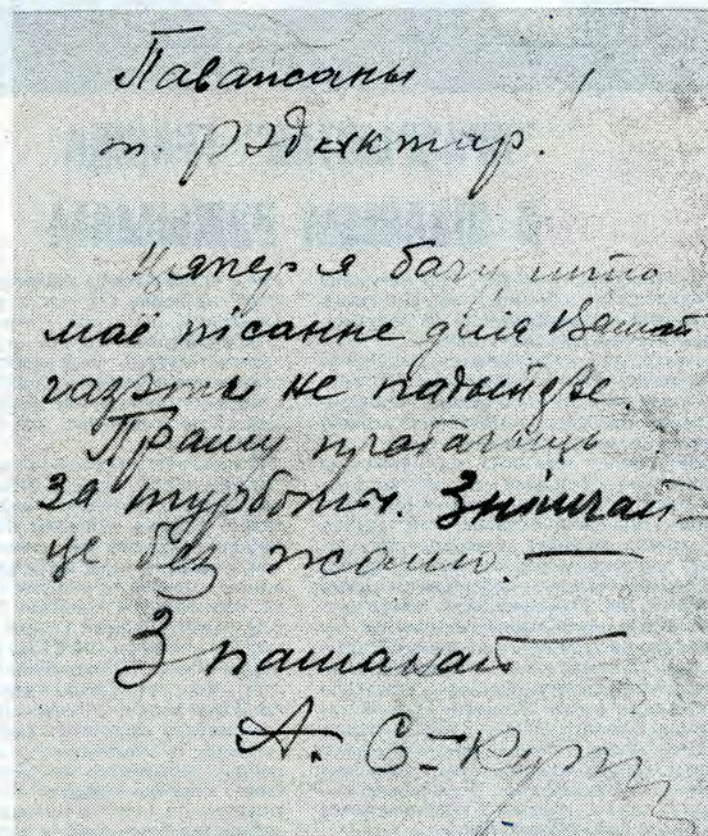 Паважаны
т. рэдактар.
Цяпер я бачу, што
маё пісанне для Вашай
газэты не падыйдзе.
Прашу прабачыць
за турботы. Знішчай-
це без жалю. —
З пашанай
А. С-